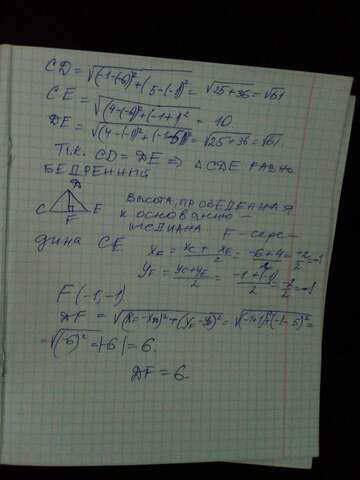 CD = √(-1-(-6))²+(5-(-1))² = √25+36 = √61
CE = √(4-(-6))²+(-1+1)² = 10
DE = √(4-(-1))²+(-1-5)² = √25+36 = √61.
Т.к. CD = DE ⇒ △CDE РАВНО
БЕДРЕННЫЙ
D
C F E
ВЫСОТА, ПРОВЕДЕННАЯ
К ОСНОВАНИЮ –
МЕДИАНА F – сере-
дина CE
x_F = (x_C + x_E)/2 = (-6+4)/2 = -2/2 = -1
y_F = (y_C + y_E)/2 = (-1+(-1))/2 = -2/2 = -1
F (-1, -1)
DF = √(x_F - x_D)² + (y_F - y_D)² = √(-1+1)²+(-1-5)² =
= √(-6)² = |-6| = 6.
DF = 6